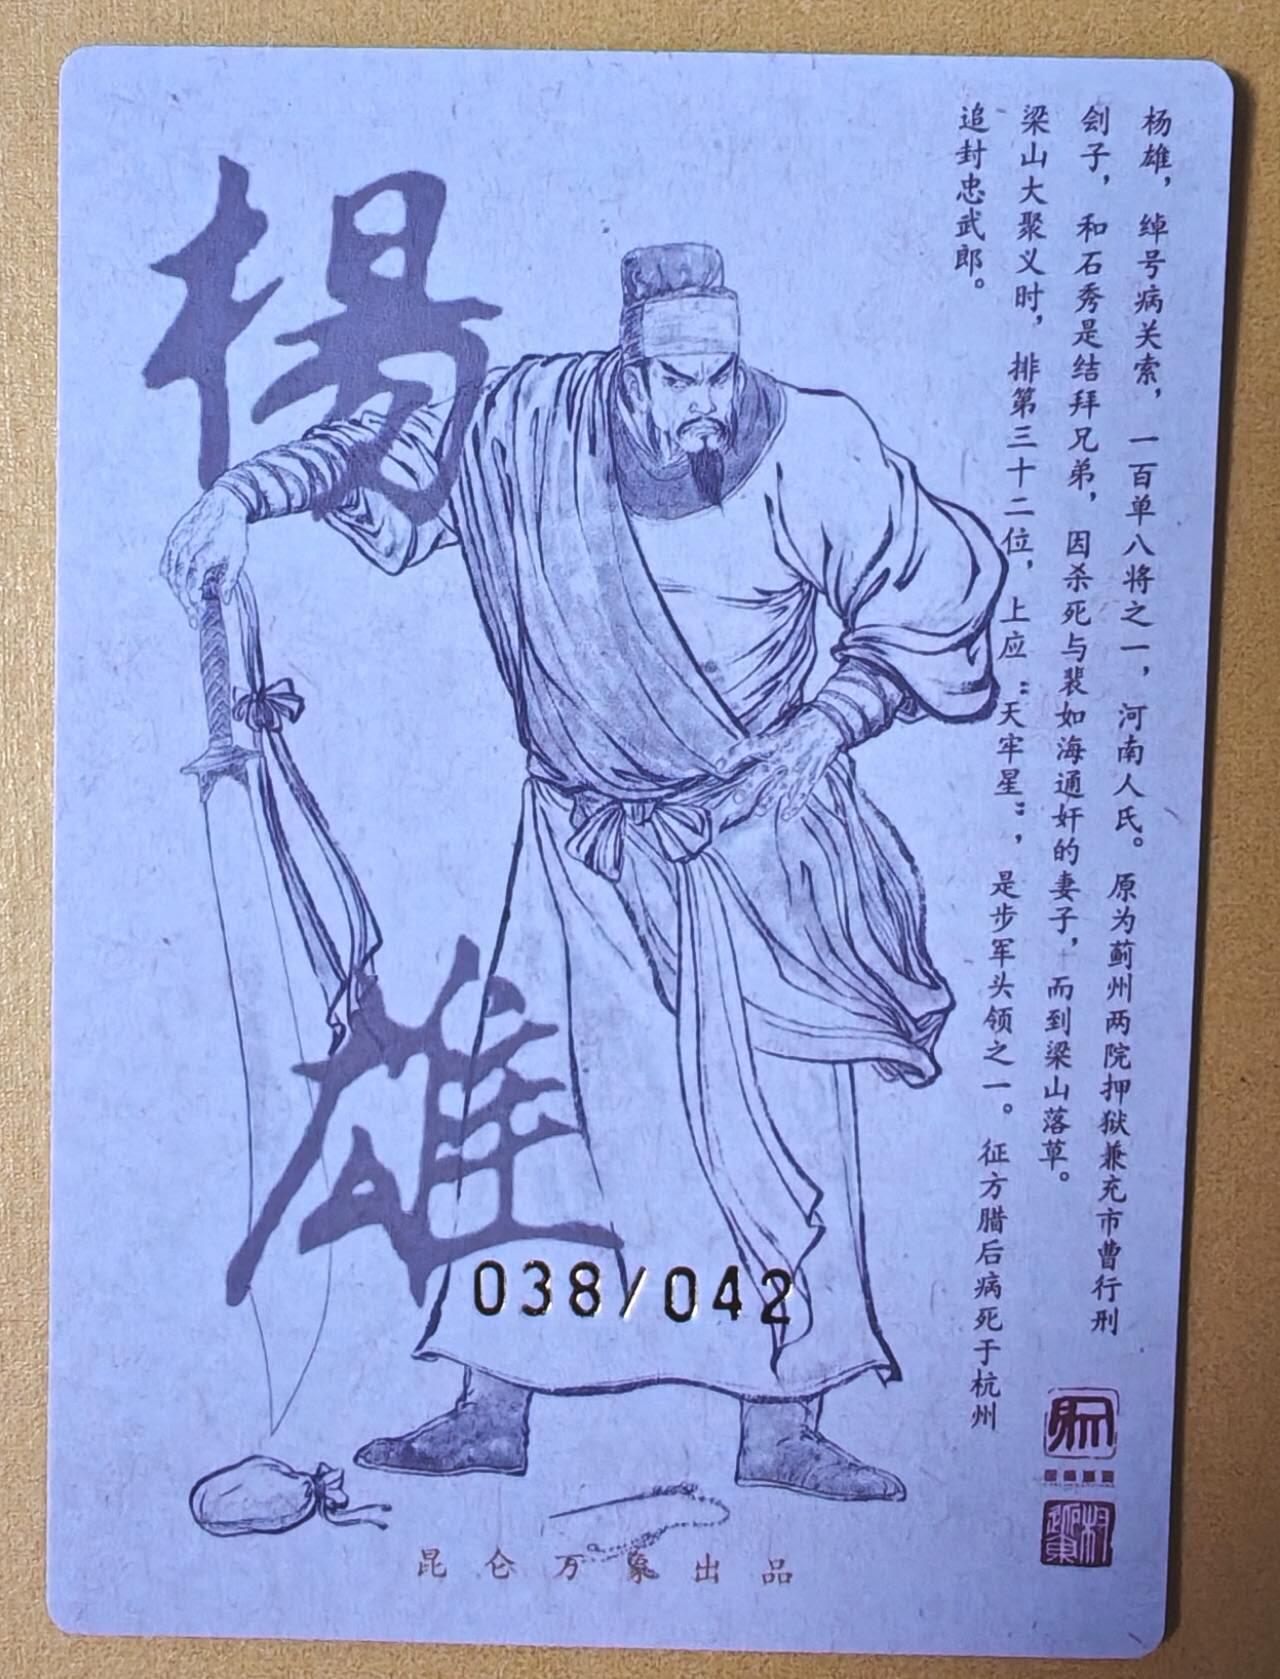 杨雄，绰号病关索，一百单八将之一，河南人氏。原为蓟州两院押狱兼充市曹行刑
刽子，和石秀是结拜兄弟，因杀死与裴如海通奸的妻子，而到梁山落草。
梁山大聚义时，排第三十二位，上应：天牢星：，是步军头领之一。征方腊后病死于杭州
追封忠武郎。
楊
雄
038/042
昆仑万象出品